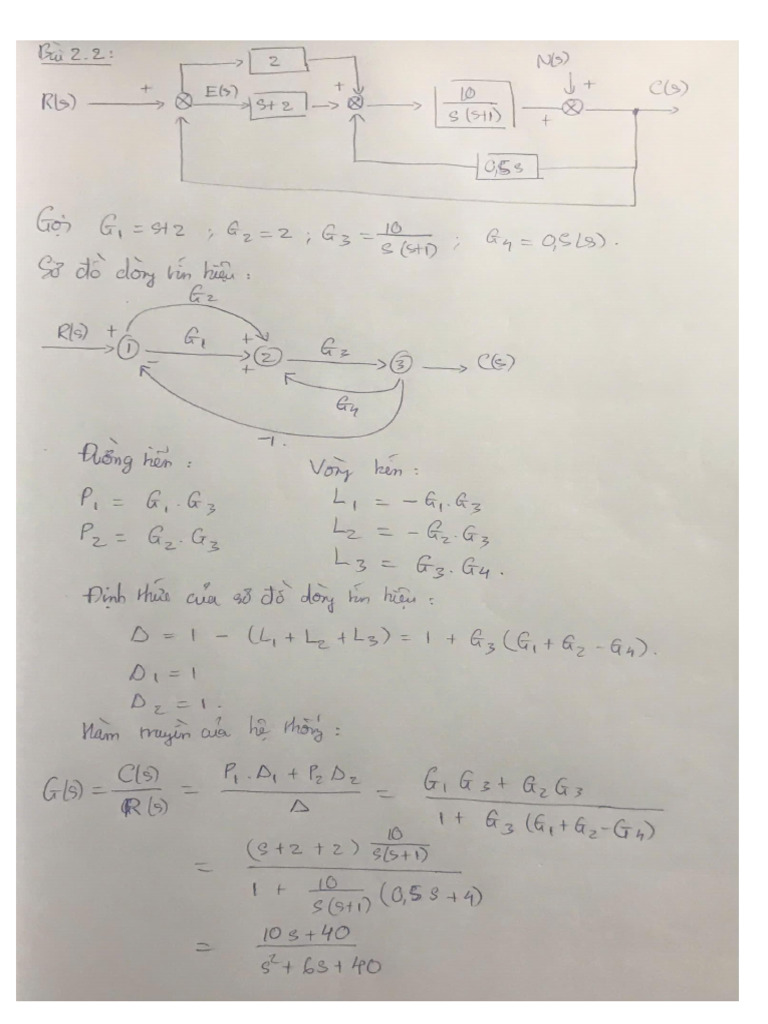 Bài 2.2:
2
N(s)
R(s) + E(s) s+2 + 10/(s(s+1)) + + C(s)
0,5s
Gọi G₁ = s+2 ; G₂ = 2 ; G₃ = 10/(s(s+1)) ; G₄ = 0,5(s).
Sơ đồ dòng tín hiệu :
G₂
R(s) + 1 - G₁ + + 2 G₃ 3 C(s)
G₄
-1.
Đường tiến : Vòng kén :
P₁ = G₁.G₃ L₁ = -G₁.G₃
P₂ = G₂.G₃ L₂ = -G₂.G₃
L₃ = G₃.G₄.
Định thức của sơ đồ dòng tín hiệu :
Δ = 1 - (L₁ + L₂ + L₃) = 1 + G₃(G₁ + G₂ - G₄).
Δ₁ = 1
Δ₂ = 1.
Hàm truyền của hệ thống :
G(s) = C(s)/R(s) = (P₁.Δ₁ + P₂Δ₂)/Δ = (G₁G₃ + G₂G₃)/(1 + G₃(G₁+G₂-G₄))
= ((s+2+2) 10/(s(s+1)))/(1 + 10/(s(s+1)) (0,5s+4))
= (10s+40)/(s²+6s+40)